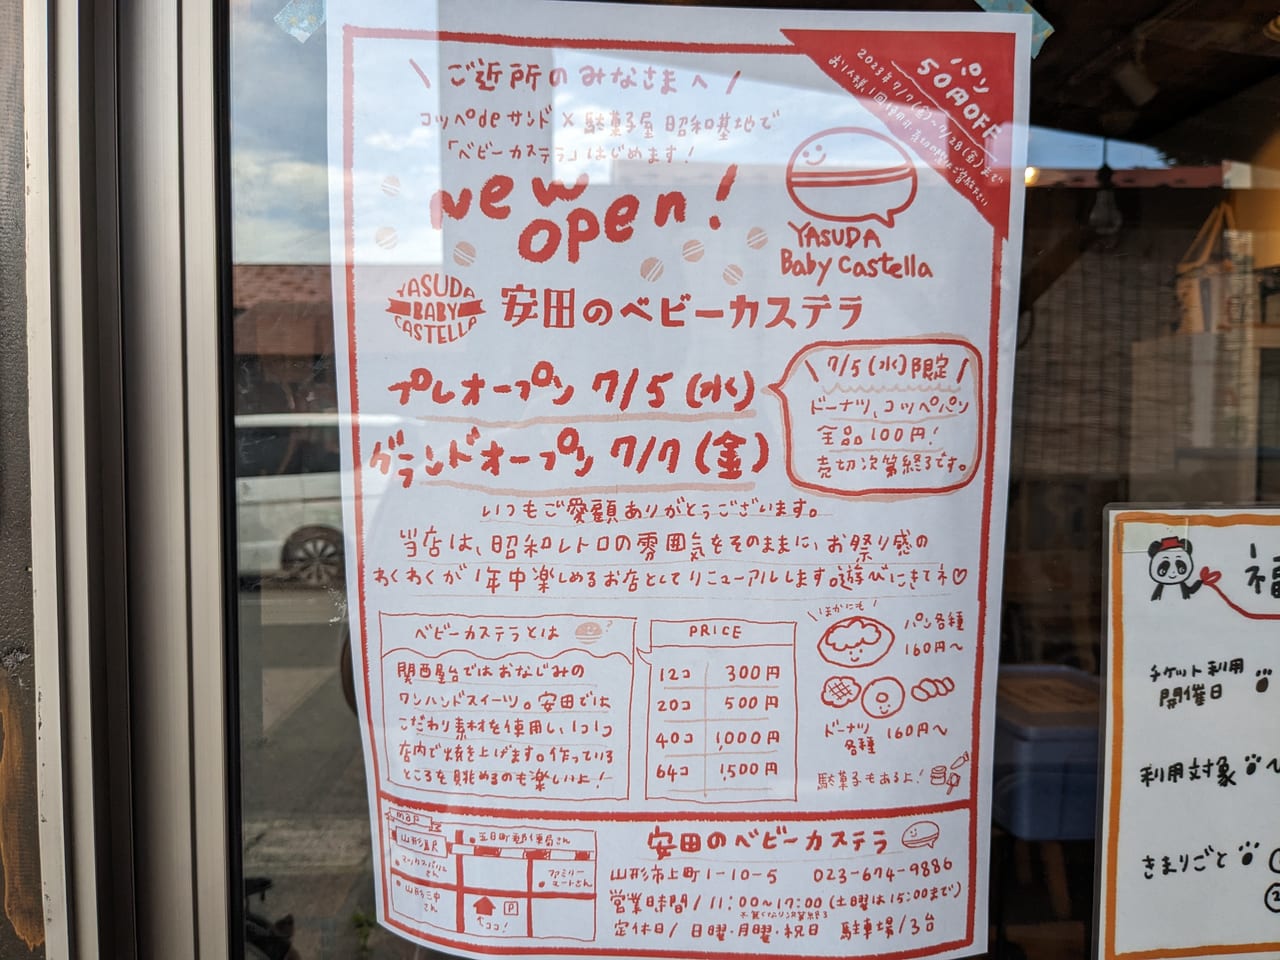 パン
50円OFF
2023年7/7(金)~7/28(金)まで
\ ご近所のみなさまへ /
コッペdeサンド×駄菓子屋 昭和基地で
「ベビーカステラ」はじめます!
New
open!
YASUDA
Baby Castella
YASUDA
BABY
CASTELLA
安田のベビーカステラ
プレオープン 7/5(水)
グランドオープン 7/7(金)
\ 7/5(水)限定 /
ドーナツ、コッペパン
全品100円!
売切次第終了です。
いつもご愛顧ありがとうございます。
当店は、昭和レトロの雰囲気をそのままに、お祭り感の
わくわくが1年中楽しめるお店としてリニューアルします。遊びにきてネ♡
ベビーカステラとは
関西屋台ではおなじみの
ワンハンドスイーツ。安田では
こだわり素材を使用し、1コ1コ
店内で焼き上げます。作っている
ところを眺めるのも楽しいよ!
PRICE
12コ 300円
20コ 500円
40コ 1,000円
64コ 1,500円
\ほかにも/
パン各種
160円~
ドーナツ
各種 160円~
駄菓子もあるよ!
map
五日町郵便局さん
マックスバリュ
さん
ファミリー
マートさん
山形三中
さん
P
ココ!
安田のベビーカステラ
山形市上町1-10-5 023-674-9886
営業時間/11:00~17:00(土曜は15:00まで)
※無くなり次第終了
定休日/日曜・月曜・祝日 駐車場/3台
福
チケット利用
開催日
利用対象
きまりごと